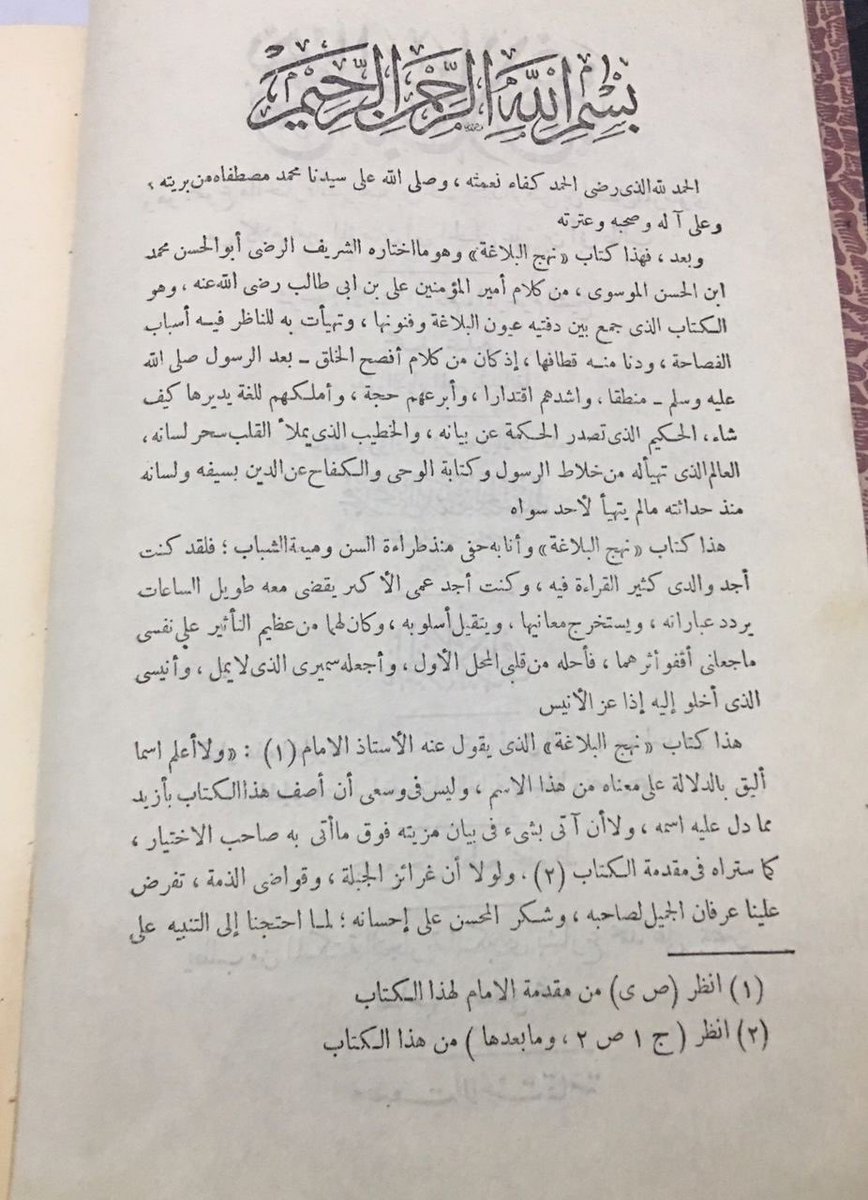 بِسْمِ اللهِ الرَّحْمنِ الرَّحِيمِ
الحمد لله الذى رضى الحمد كفاء نعمته ، وصلى الله على سيدنا محمد مصطفاه من بريته ،
وعلى آله وصحبه وعترته
وبعد ، فهذا كتاب «نهج البلاغة» وهو ما اختاره الشريف الرضى أبو الحسن محمد
ابن الحسن الموسوى ، من كلام أمير المؤمنين على بن ابى طالب رضى الله عنه ، وهو
الكتاب الذى جمع بين دفتيه عيون البلاغة وفنونها ، وتهيأت به للناظر فيه أسباب
الفصاحة ، ودنا منه قطافها ، إذ كان من كلام أفصح الخلق ـ بعد الرسول صلى الله
عليه وسلم ـ منطقا ، واشدهم اقتدارا ، وأبرعهم حجة ، وأملكهم للغة يديرها كيف
شاء ، الحكيم الذى تصدر الحكمة عن بيانه ، والخطيب الذى يملأ القلب سحر لسانه ،
العالم الذى تهيأ له من خلاط الرسول وكتابة الوحى والكفاح عن الدين بسيفه ولسانه
منذ حداثته مالم يتهيأ لأحد سواه
هذا كتاب «نهج البلاغة» وأنا به حفى منذ طراءة السن وميعة الشباب ؛ فلقد كنت
أجد والدى كثير القراءة فيه ، وكنت أجد عمى الأكبر يقضى معه طويل الساعات
يردد عباراته ، ويستخرج معانيها ، ويتقيل أسلوبه ، وكان لهما من عظيم التأثير على نفسى
ما جعلنى أقفو أثرهما ، فأحله من قلبى المحل الأول ، وأجعله سميرى الذى لا يمل ، وأنيسى
الذى أخلو إليه إذا عز الأنيس
هذا كتاب «نهج البلاغة» الذى يقول عنه الأستاذ الامام (١) : «ولا أعلم اسما
أليق بالدلالة على معناه من هذا الاسم ، وليس فى وسعى أن أصف هذا الكتاب بأزيد
مما دل عليه اسمه ، ولا أن آتى بشىء فى بيان مزيته فوق ما أتى به صاحب الاختيار ،
كما ستراه فى مقدمة الكتاب (٢) . ولولا أن غرائز الجبلة ، وقواضى الذمة ، تفرض
علينا عرفان الجميل لصاحبه ، وشكر المحسن على إحسانه ؛ لما احتجنا إلى التنبيه على
(١) انظر (ص ى) من مقدمة الامام لهذا الكتاب
(٢) انظر ( ج ١ ص ٢ ، وما بعدها ) من هذا الكتاب